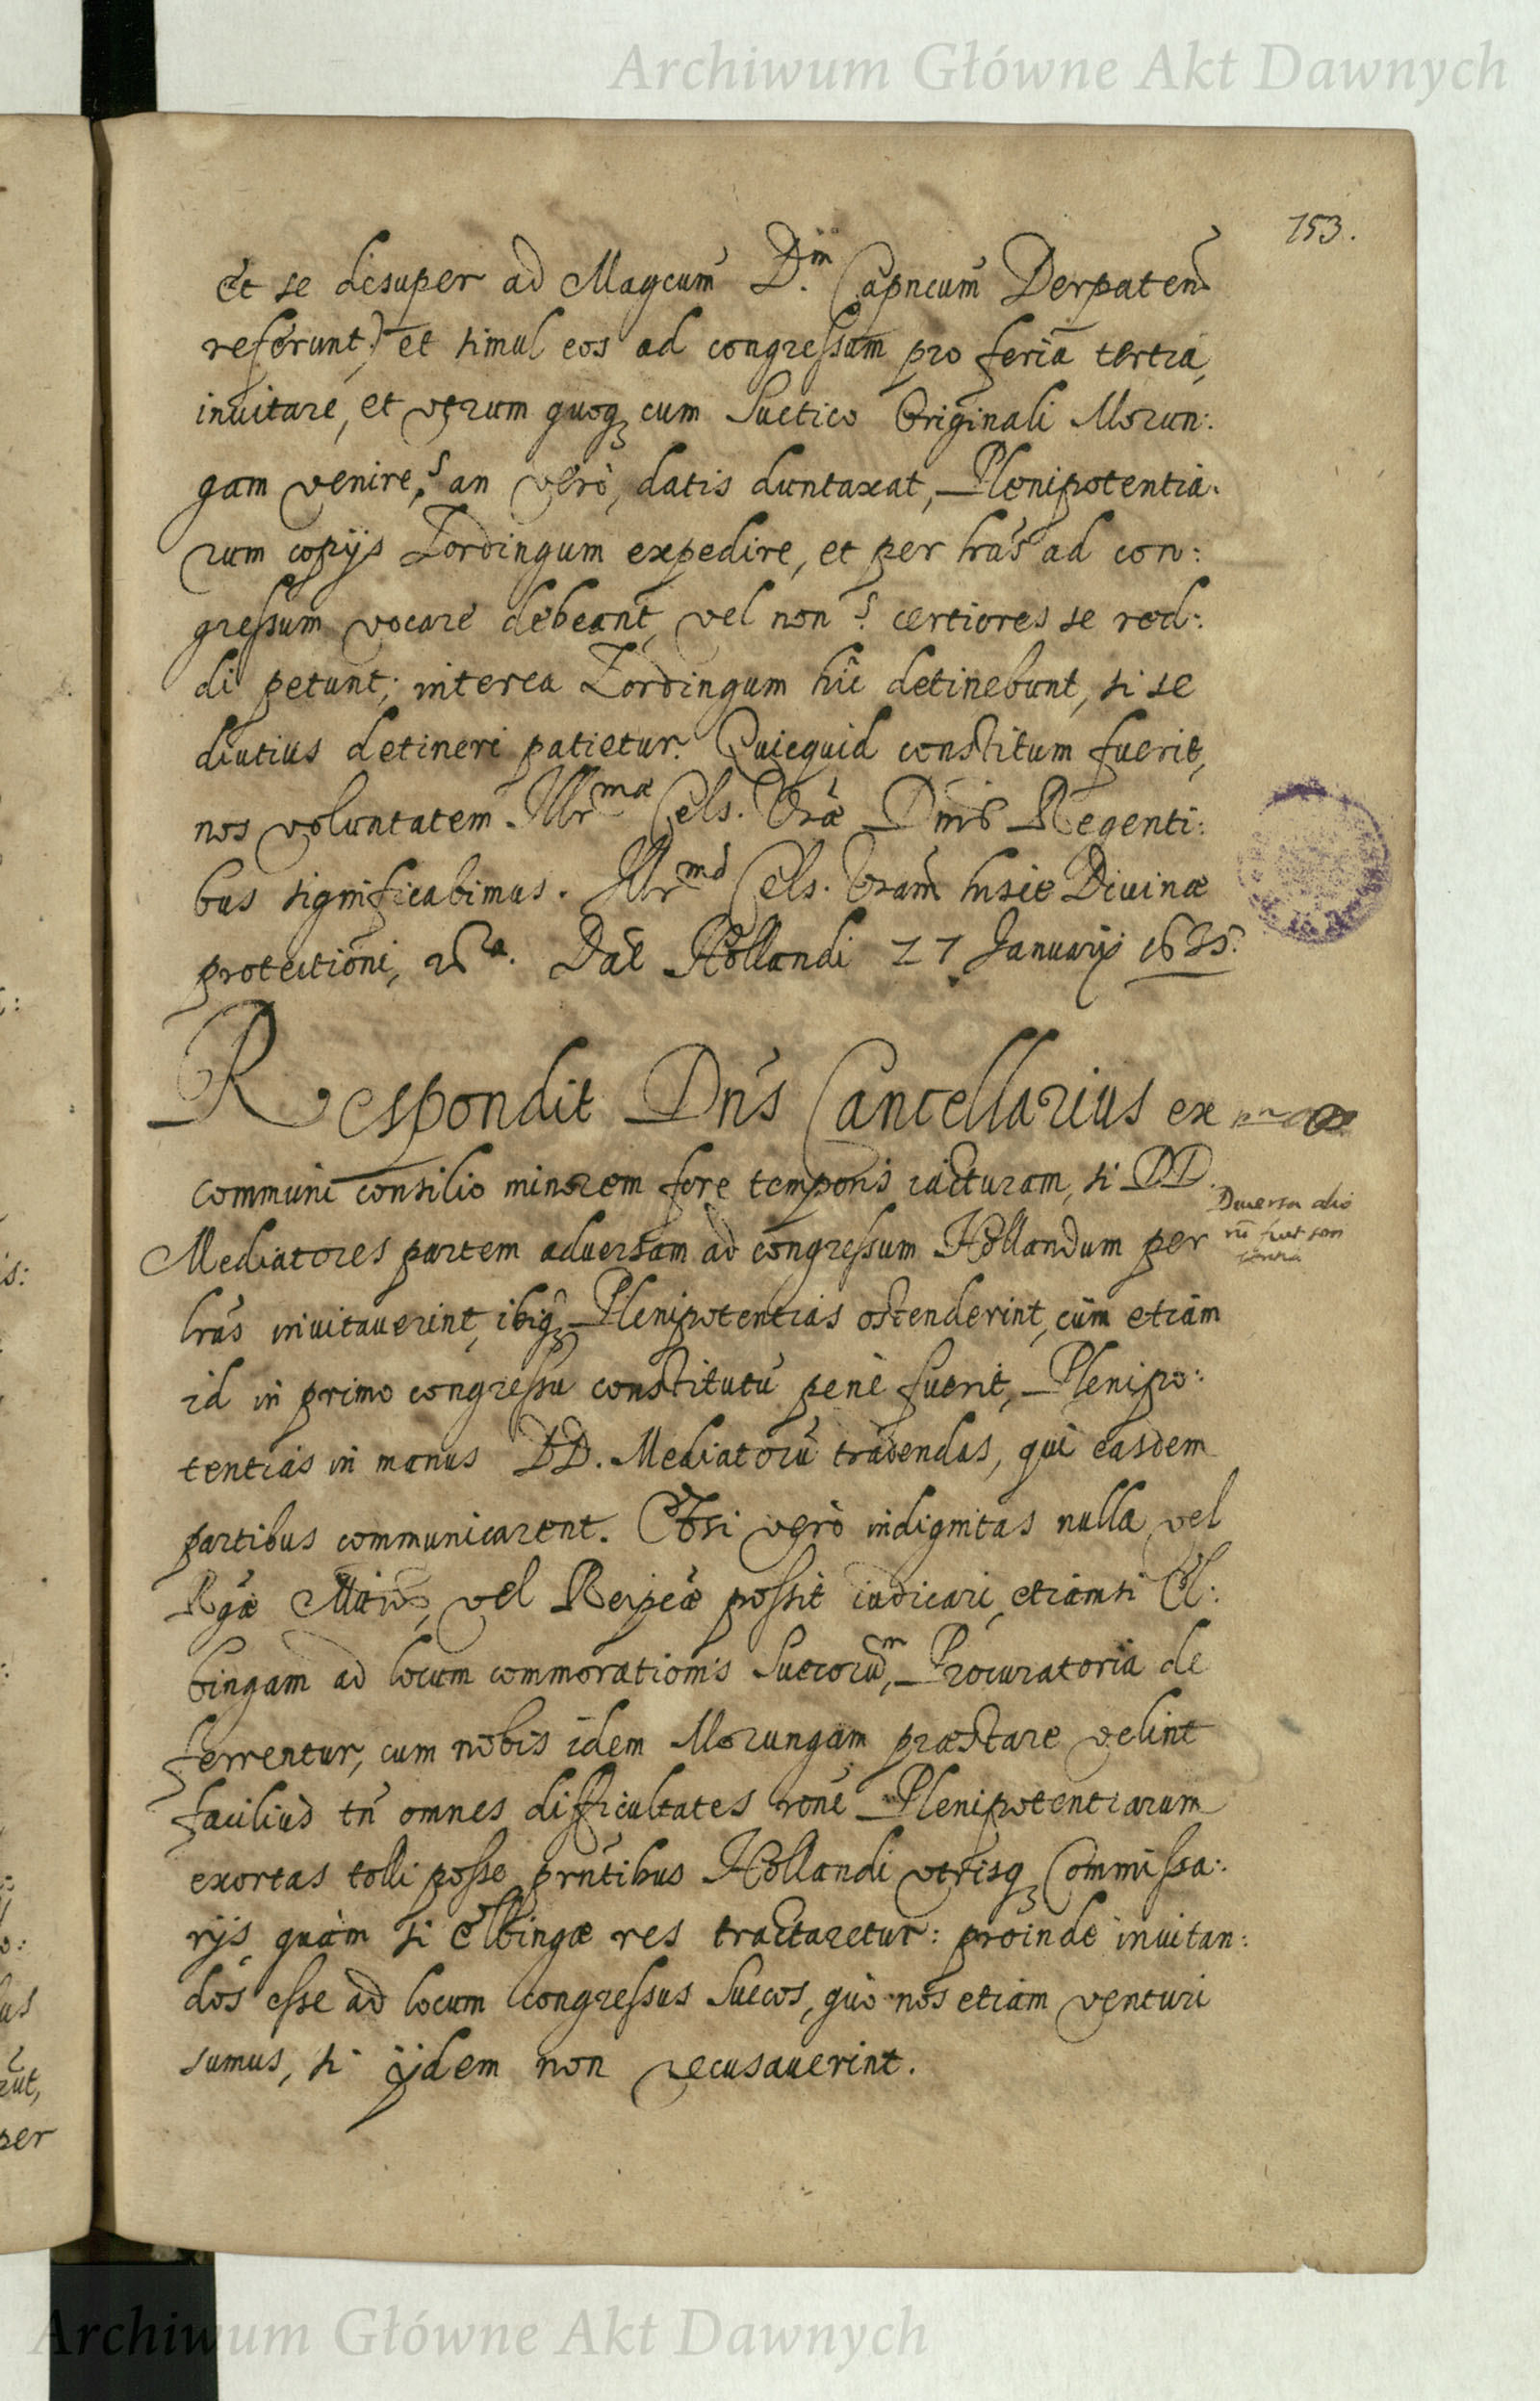 Archiwum Główne Akt Dawnych
153.
et se desuper ad Magcum D.m Capncum Derpaten
referunt) et simul eos ad congressum pro feria tertia,
inuitare, et utrum quoq cum Suetico Originali Morun:
gam venire? an verò, datis duntaxat, Plenipotentia:
rum copijs Zordingum expedire, et per lras ad con:
gressum vocare debeant, vel non? certiores se red:
di petunt; interea Zordingum hic detinebunt, si se
diutius detineri patietur. Quicquid constitum fuerit,
nos voluntatem Illrmæ Cels. Vræ Dnis Regenti:
bus significabimus. Illrmã Cels. Vram hisce Diuinæ
protectioni, Dat Hollandi 27 Januarij 1635.
Respondit Dns Cancellarius ex
communi consilio minorem fore temporis iacturam, si DD.
Diuersa alio
Mediatores partem aduersam ad congressum Hollandum per
rũ fuit sen
tentia
lras inuitauerint, ibiq Plenipotentias ostenderint, cùm etiam
id in primo congressu constitutũ penè fuerit, Plenipo:
tentias in manus DD. Mediatorũ tradendas, qui easdem
partibus communicarent. Etsi verò indignitas nulla vel
Rgæ Mtis, vel Reipcæ possit iudicari, etiamsi El:
bingam ad locum commorationis Suecorum, Procuratoria de
ferrentur, cum nobis idem Morungam præstare velint
facilius tñ omnes difficultates rone Plenipotentiarum
exortas tolli posse prntibus Hollandi utrisq Commissa:
rijs, quàm si Elbingæ res tractaretur: proinde inuitan:
dos esse ad locum congressus Suecos, quò nos etiam venturi
sumus, si ijdem non recusauerint.
per
Archiwum Główne Akt Dawnych